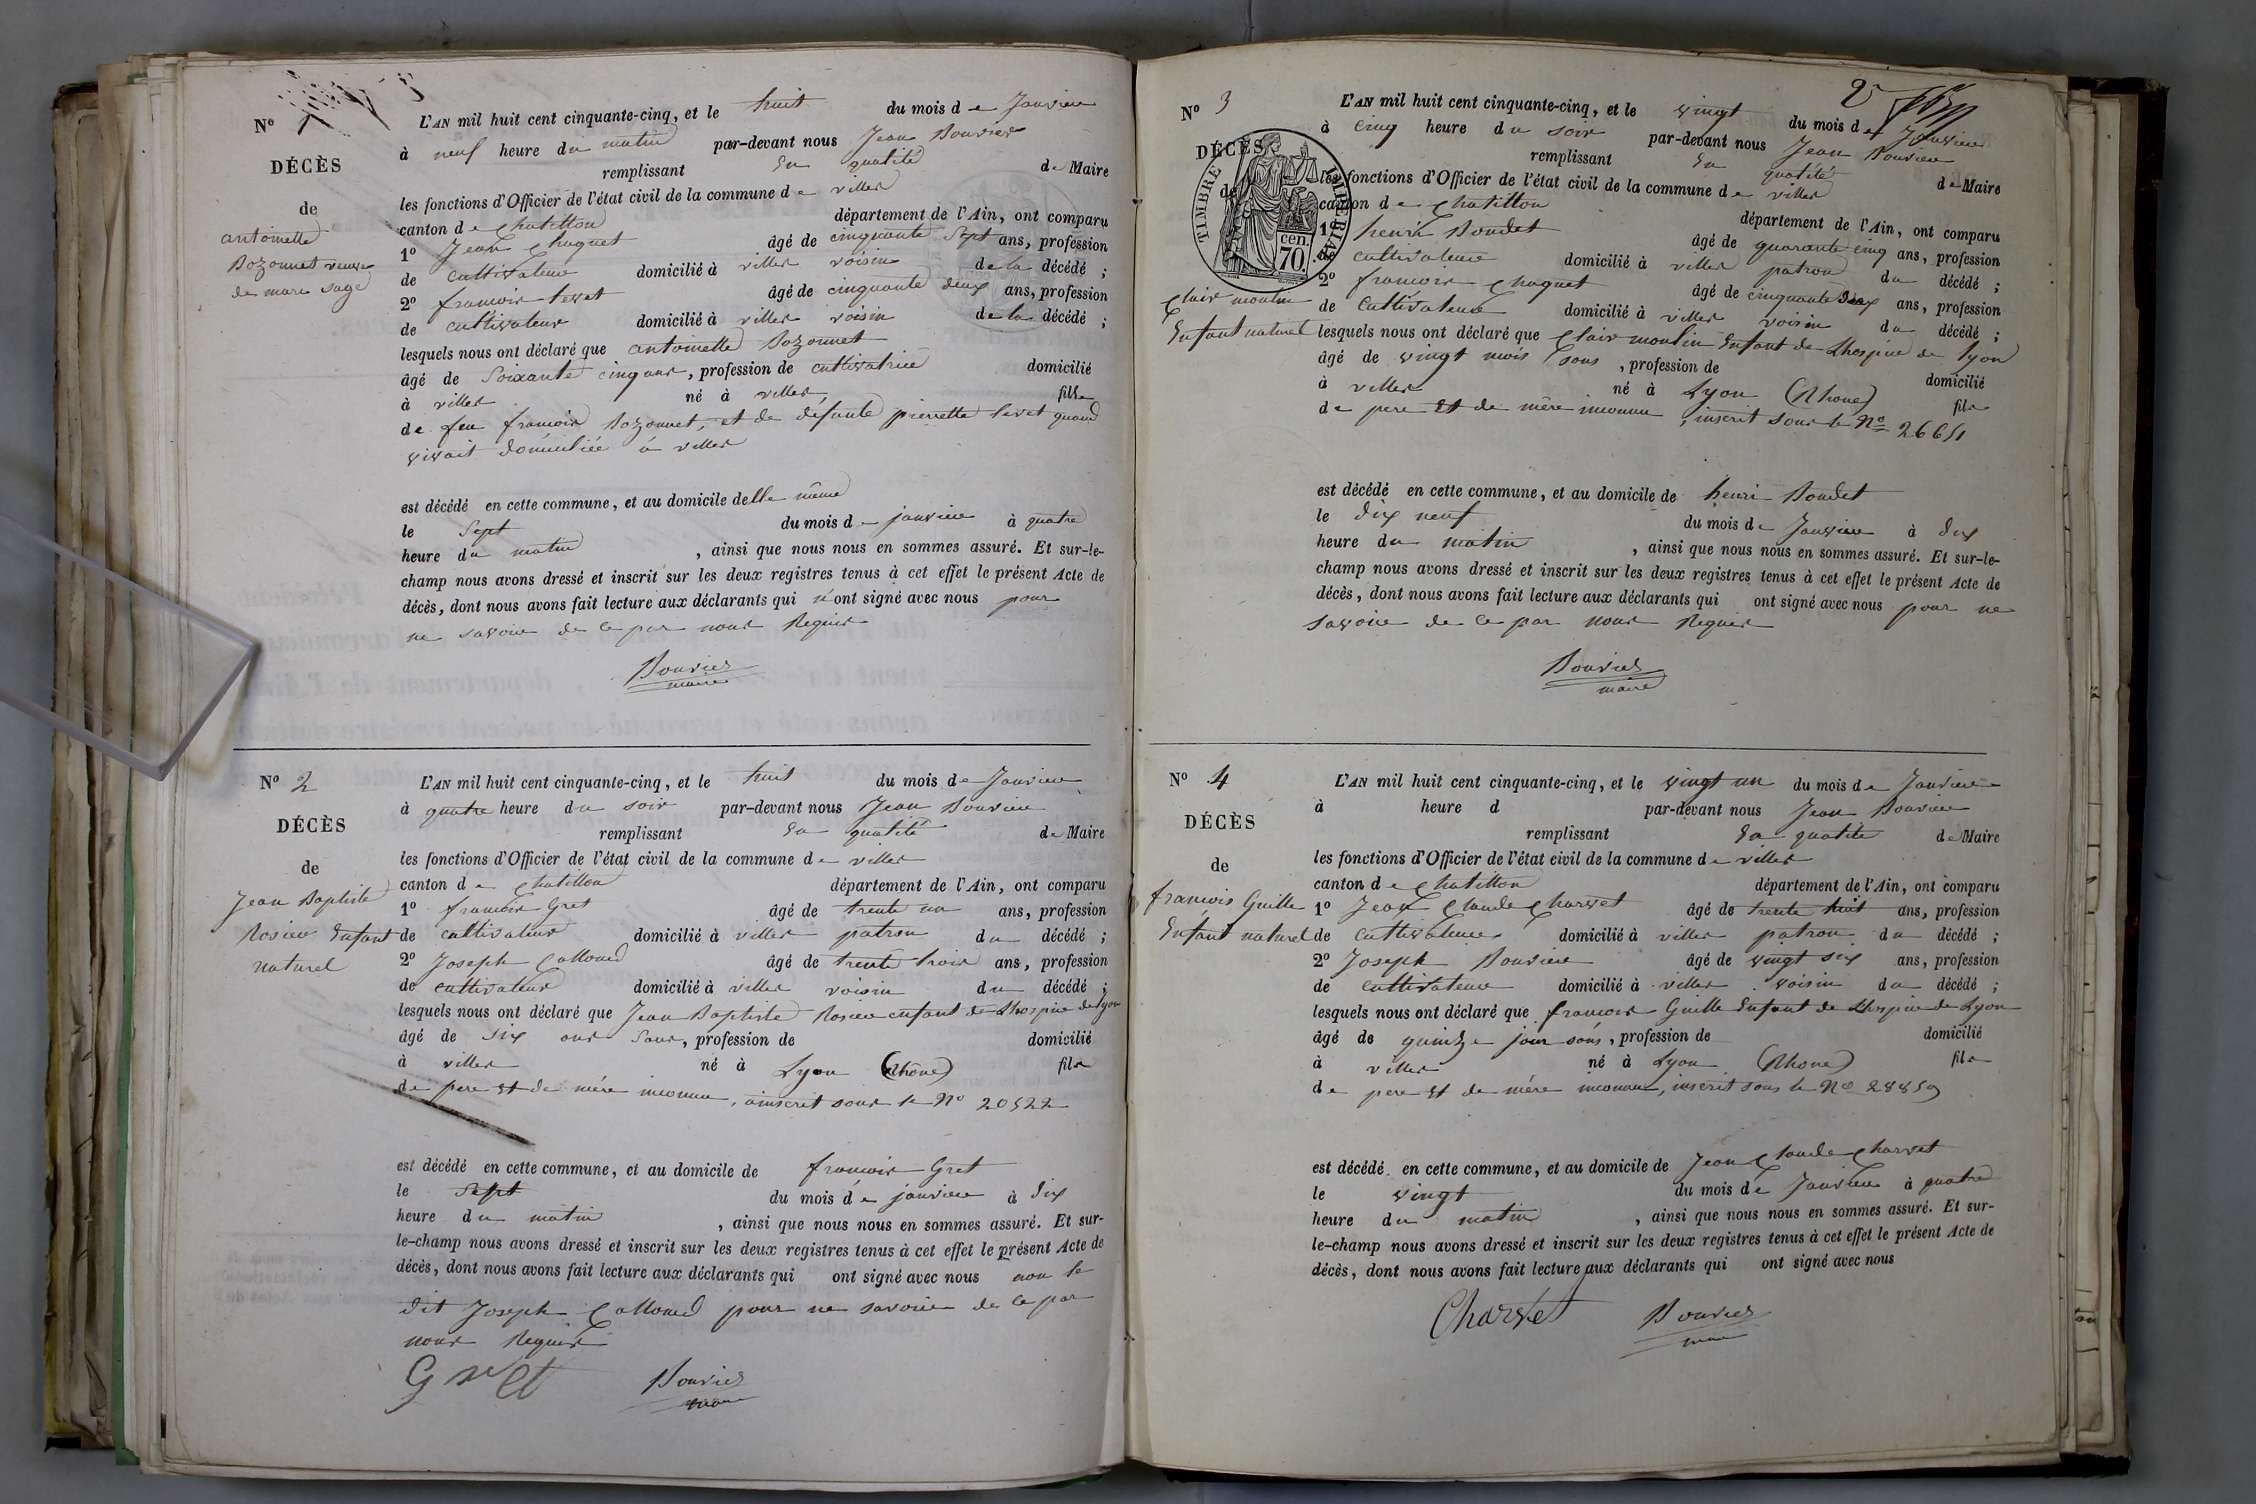 Nº 1
DÉCÈS
de
antoinette
Bozonnet veuve
de marc sage
L'AN mil huit cent cinquante-cinq, et le huit du mois de Janvier
à neuf heure du matin par-devant nous Jean Bouvier
remplissant En qualité de Maire
les fonctions d'Officier de l'état civil de la commune de villes
canton de Chatillon département de l'Ain, ont comparu
1º Jean Chaquet âgé de cinquante sept ans, profession
de cultivateur domicilié à villes voisin de la décédé ;
2º francois âgé de cinquante deux ans, profession
de cultivateur domicilié à villes voisin de la décédé ;
lesquels nous ont déclaré que antoinette Bozonnet
âgé de Soixante cinq ans, profession de cultivatrice domicilié
à villes né à villes fille
de feu francois Bozonnet, et de défunte pierrette quand
vivait domiciliée à villes
est décédé en cette commune, et au domicile delle même
le Sept du mois de janvier à quatre
heure du matin , ainsi que nous nous en sommes assuré. Et sur-le-
champ nous avons dressé et inscrit sur les deux registres tenus à cet effet le présent Acte de
décès, dont nous avons fait lecture aux déclarants qui n'ont signé avec nous pour
ne savoir de ce par nous Requis
Bouvier
maire
Nº 2
DÉCÈS
de
Jean Baptiste
Rosier Enfant
naturel
L'AN mil huit cent cinquante-cinq, et le huit du mois de Janvier
à quatre heure du soir par-devant nous Jean Bouvier
remplissant En qualité de Maire
les fonctions d'Officier de l'état civil de la commune de villes
canton de Chatillon département de l'Ain, ont comparu
1º francois Gret âgé de trente un ans, profession
de cultivateur domicilié à villes patron du décédé ;
2º Joseph Calloud âgé de trente trois ans, profession
de cultivateur domicilié à villes voisin du décédé ;
lesquels nous ont déclaré que Jean Baptiste Rosier enfant de Lhospice de Lyon
âgé de Six ans Sans, profession de domicilié
à villes né à Lyon (Rhône) fils
de pere Et de mère inconnu, inscrit sous le Nº 20522
est décédé en cette commune, et au domicile de francois Gret
le Sept du mois de janvier à dix
heure du matin , ainsi que nous nous en sommes assuré. Et sur-
le-champ nous avons dressé et inscrit sur les deux registres tenus à cet effet le présent Acte de
décès, dont nous avons fait lecture aux déclarants qui ont signé avec nous non le
dit Joseph Calloud pour ne savoir de ce par
nous Requis
Gret Bouvier
maire
2
Nº 3
DÉCÈS
de
TIMBRE IMPERIAL
70 cen.
Clair moulin
Enfant naturel
L'AN mil huit cent cinquante-cinq, et le vingt du mois de Janvier
à cinq heure du soir par-devant nous Jean Bouvier
remplissant En qualité de Maire
les fonctions d'Officier de l'état civil de la commune de villes
canton de Chatillon département de l'Ain, ont comparu
1º henri Boudet âgé de quarante cinq ans, profession
de cultivateur domicilié à villes patron du décédé ;
2º francois Chaquet âgé de cinquante deux ans, profession
de Cultivateur domicilié à villes voisin du décédé ;
lesquels nous ont déclaré que Clair moulin Enfant de Lhospice de Lyon
âgé de vingt mois Sans, profession de domicilié
à villes né à Lyon (Rhone) fils
de pere Et de mère inconnu, inscrit sous le Nº
est décédé en cette commune, et au domicile de henri Boudet
le dix neuf du mois de Janvier à dix
heure du matin , ainsi que nous nous en sommes assuré. Et sur-le-
champ nous avons dressé et inscrit sur les deux registres tenus à cet effet le présent Acte de
décès, dont nous avons fait lecture aux déclarants qui ont signé avec nous pour ne
savoir de ce par nous Requis
Bouvier
maire
Nº 4
DÉCÈS
de
francois Guille
Enfant naturel
L'AN mil huit cent cinquante-cinq, et le vingt un du mois de Janvier
à heure d par-devant nous Jean Bouvier
remplissant En qualité de Maire
les fonctions d'Officier de l'état civil de la commune de villes
canton de Chatillon département de l'Ain, ont comparu
1º Jean Claude Charvet âgé de trente huit ans, profession
de cultivateur domicilié à villes patron du décédé ;
2º Joseph Bouvier âgé de vingt six ans, profession
de cultivateur domicilié à villes voisin du décédé ;
lesquels nous ont déclaré que francois Guille Enfant de Lhospice de Lyon
âgé de quinze jour sans, profession de domicilié
à villes né à Lyon (Rhone) fils
de pere Et de mère inconnu, inscrit sous le Nº 28859
est décédé en cette commune, et au domicile de Jean Claude Charvet
le vingt du mois de Janvier à quatre
heure du matin , ainsi que nous nous en sommes assuré. Et sur-
le-champ nous avons dressé et inscrit sur les deux registres tenus à cet effet le présent Acte de
décès, dont nous avons fait lecture aux déclarants qui ont signé avec nous
Charvet Bouvier
maire